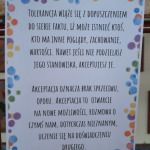 TOLERANCJA WIĄŻE SIĘ Z DOPUSZCZENIEM
DO SIEBIE FAKTU, IŻ MOŻE ISTNIEĆ KTOŚ,
KTO MA INNE POGLĄDY, ZACHOWANIE,
WARTOŚCI. NAWET JEŚLI NIE PODZIELASZ
JEGO STANOWISKA, AKCEPTUJESZ JE.
AKCEPTACJA OZNACZA BRAK SPRZECIWU,
OPORU. AKCEPTACJA TO OTWARCIE
NA NOWE MOŻLIWOŚCI, ROZMOWA O
CZYMŚ NAM, DOTYCHCZAS NIEZNANYM,
UCZENIE SIĘ NA DOŚWIADCZENIU
DRUGIEGO.